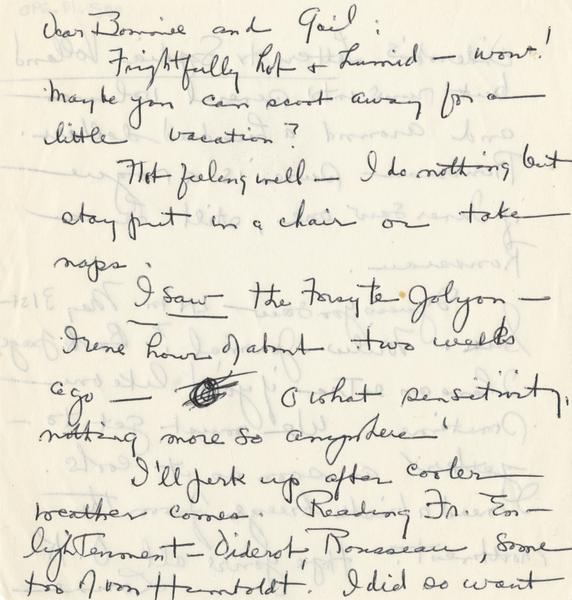 Dear Bonnie and Gail:
Frightfully hot & humid — wow!
Maybe you can scoot away for a
little vacation?
Not feeling well — I do nothing but
stay put in a chair or take
naps.
I saw the Forsyte Jolyon —
Irene hour of about two weeks
ago — O what sensitivity,
nothing more so anywhere!
I'll perk up after cooler
weather comes. Reading Fr. En-
lightenment — Diderot, Rousseau, some
too of von Humboldt. I did so want